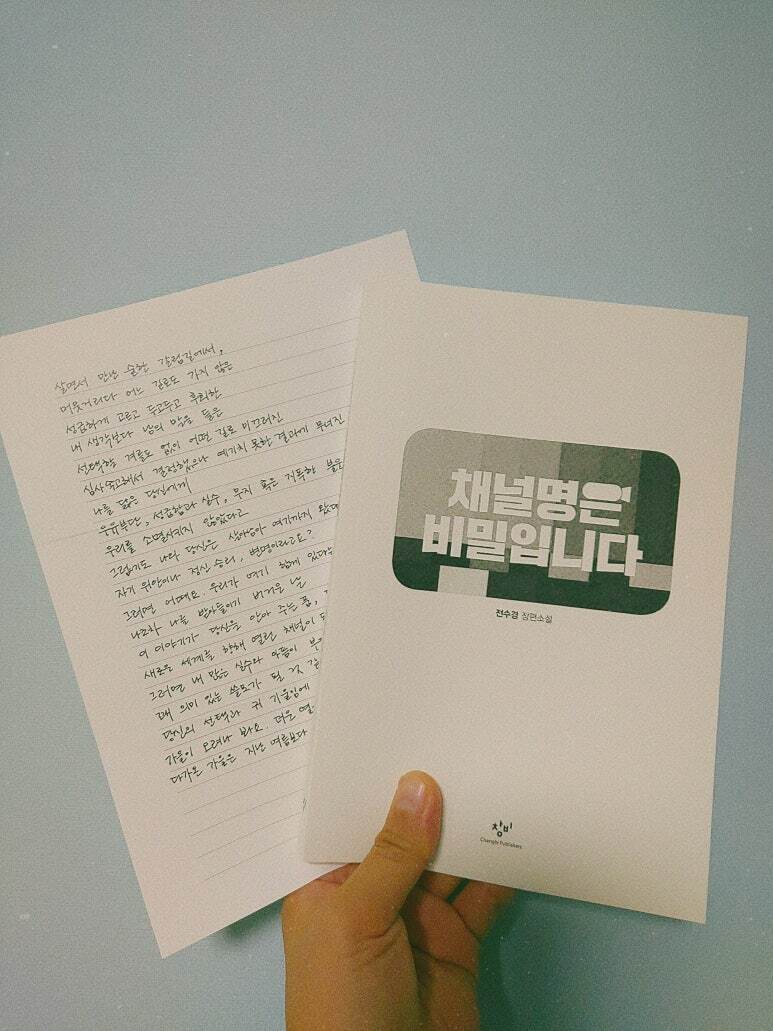 살면서 만난 숱한 갈림길에서,
머뭇거리다 어느 길로도 가지 않은
성급하게 고르고 두고두고 후회한
내 생각보다 남의 말을 들은
선택할 겨를도 없이 어떤 길로 미끄러진
심사숙고해서 결정했으나 예기치 못한 결과가 무너진
나를 닮은 당신에게
우유부단, 성급함과 실수, 무지 혹은 지독한 불운
우리를 소멸시키지 않았다고
그럼에도 나와 당신은 살아남아 여기까지 왔
자기 위안이나 정신 승리, 변명이라고요?
그러면 어때요. 우리가 여기 함께 있다
나조차 나를 받아들이기 버거운 날
이 이야기가 당신을 안아 주는 품,
새로운 세계를 향해 열린 채널이 되
그러면 내 많은 실수와 아픔이
꽤 의미 있는 쓸모가 될 것 같
당신의 선택과 귀 기울임에
가을이 오려나 봐요. 더운 열
다가온 가을은 지난 여름보다
채널명은
비밀입니다
전수경 장편소설
창비
Changbi Publishers